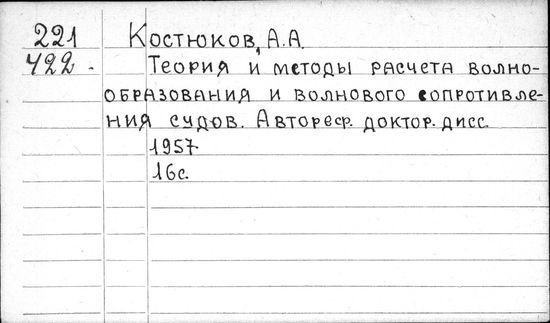 221 Костюков, А.А.
422. Теория и методы расчета волно-
образования и волнового сопротивле-
ния судов. Автореф. доктор. дисс.
1957
16с.